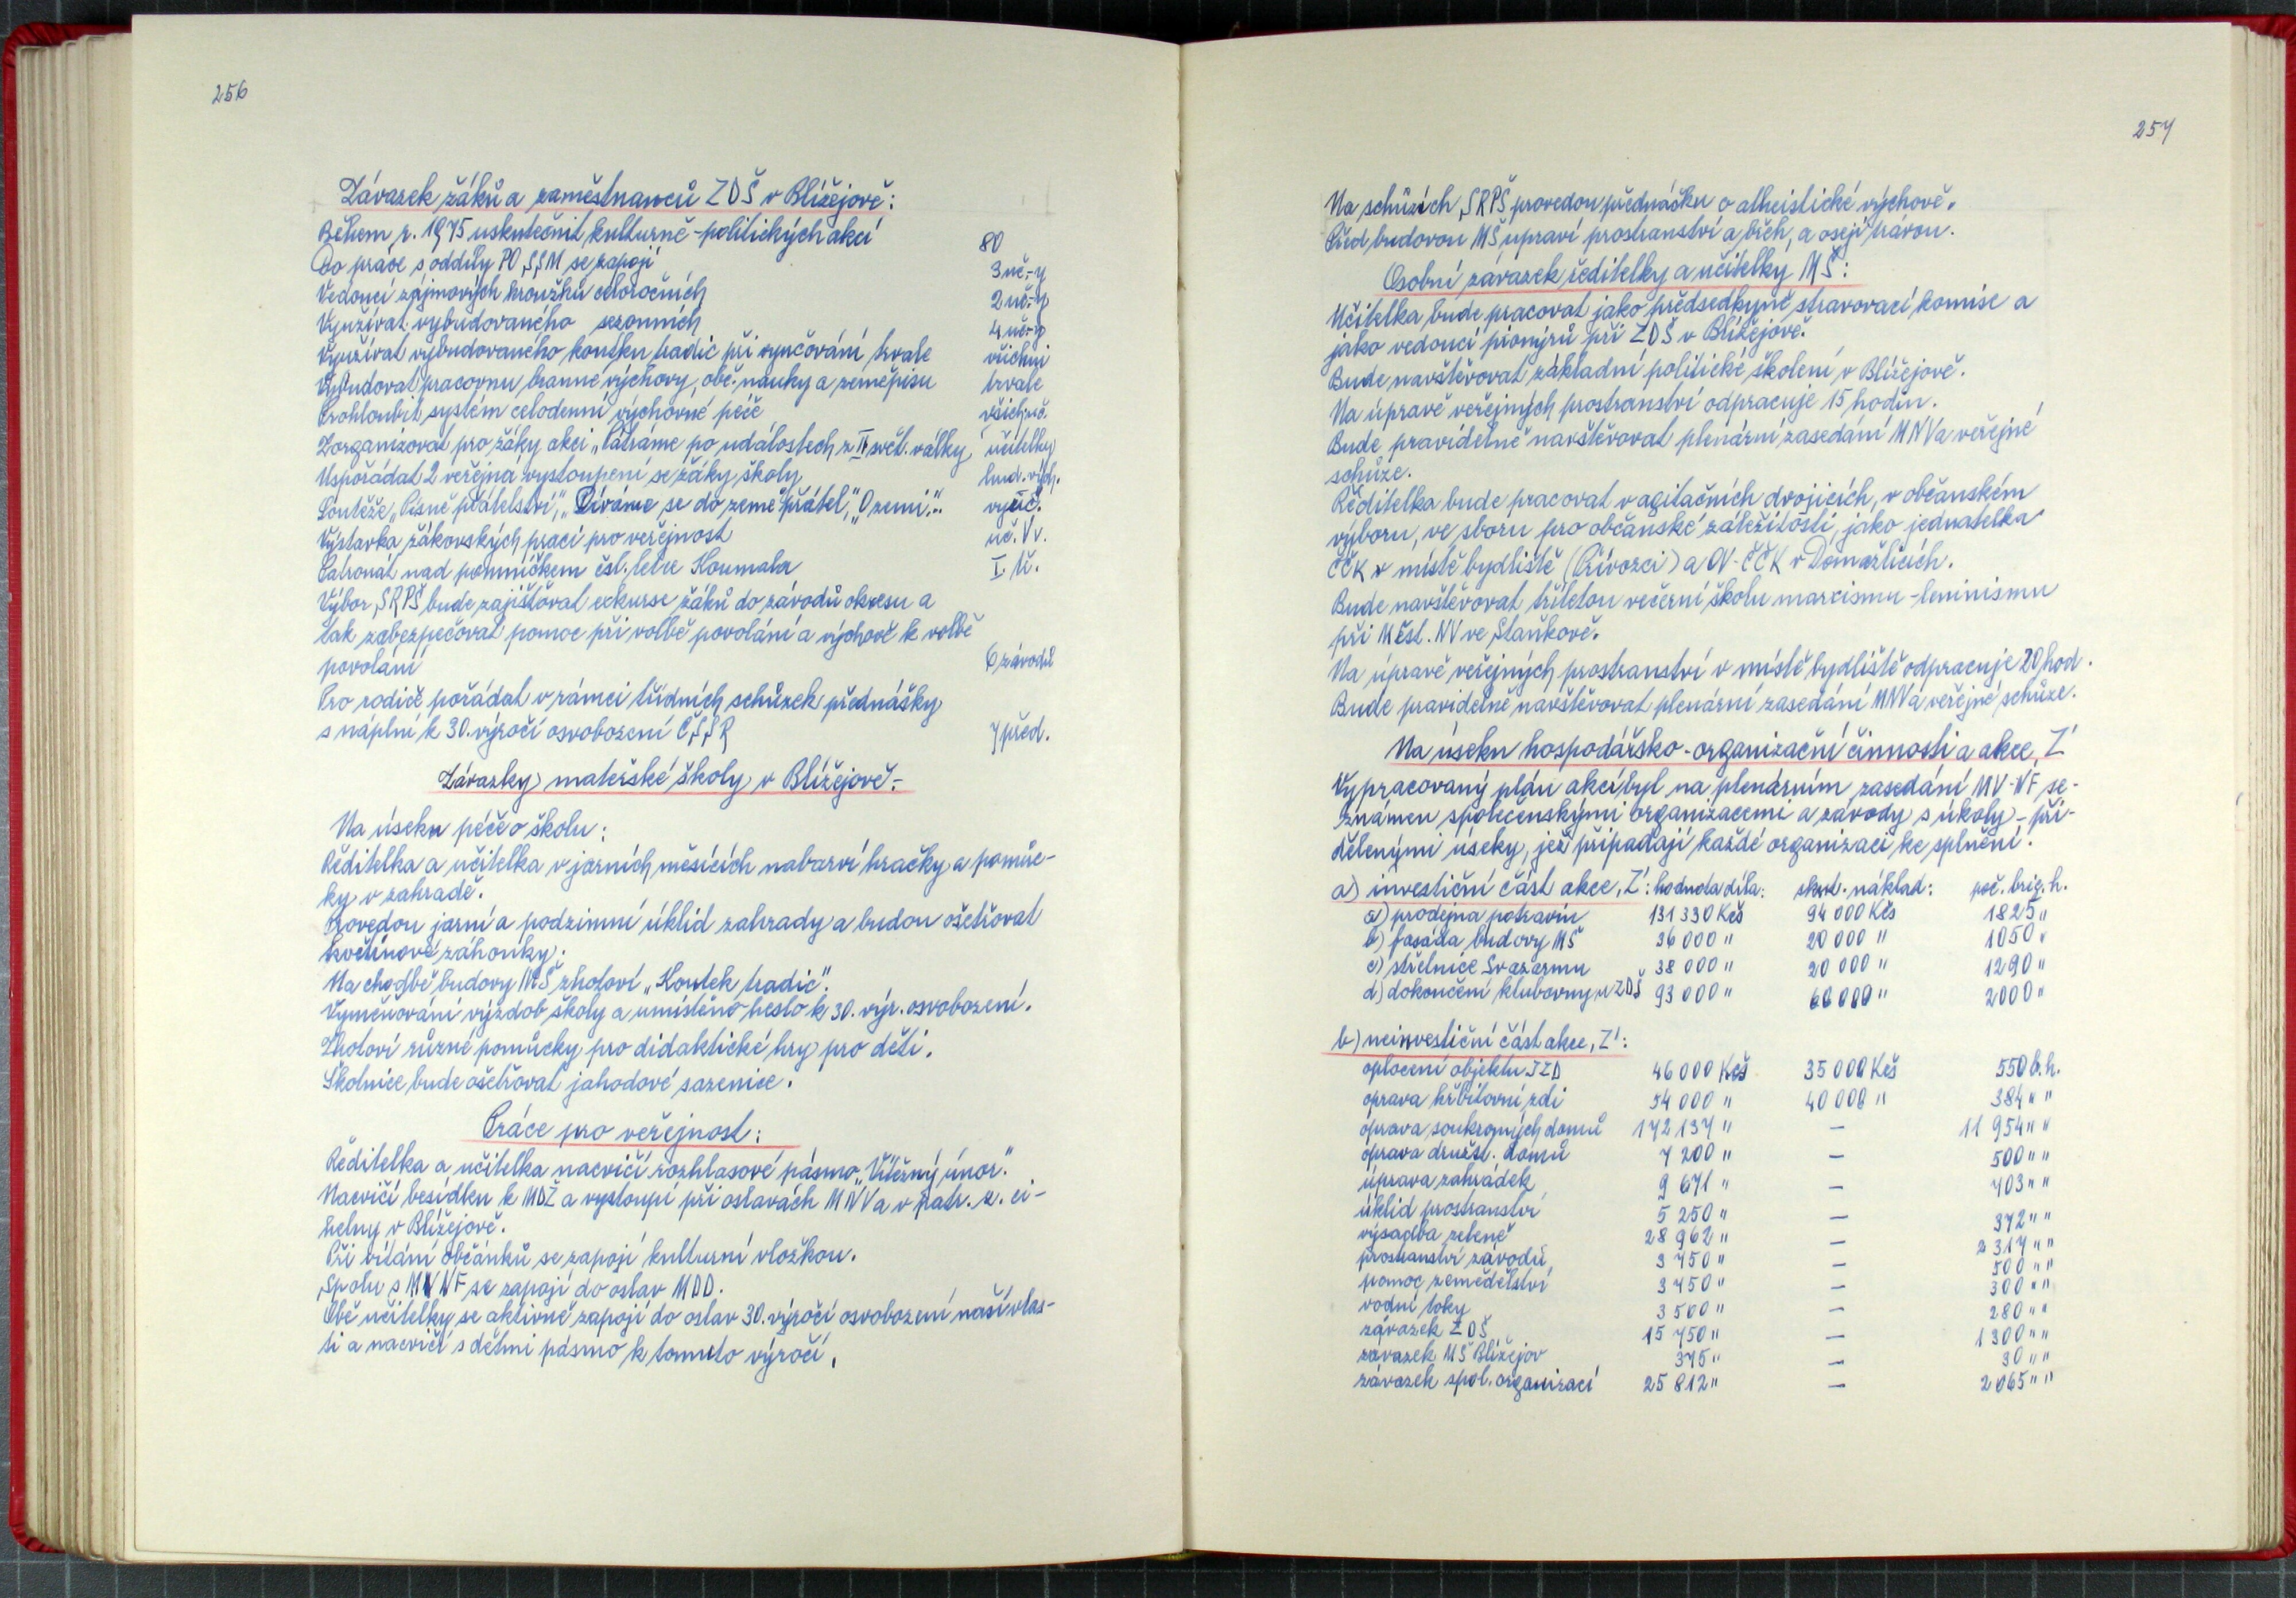 256
Závazek žáků a zaměstnanců ZDŠ v Blížejově:
Během r. 1975 uskutečnit kulturně-politických akcí 80
Do práce s oddíly PO SSM se zapojí 3 uč-y
Vedoucí zájmových kroužků celoročních 2 uč-y
Využívat vybudovaného sezonních 4 uč-y
Využívat vybudovaného koutku tradic při vyučování trvale všichni
Vybudovat pracovnu branné výchovy, obč. nauky a zeměpisu trvale
Prohloubit systém celodenní výchovné péče všich. uč.
Zorganizovat pro žáky akci „Pátráme po událostech z II svět. války učitelky
Uspořádat 2 veřejná vystoupení se žáky školy hud. vých.
Soutěže „Písně přátelství", „Díváme se do země přátel", „O zemi..." vyuč.
Výstavka žákovských prací pro veřejnost uč. Vv.
Patronát nad pomníčkem čsl. letce Houmala I. tř.
Výbor SRPŠ bude zajišťovat exkurse žáků do závodů okresu a
tak zabezpečovat pomoc při volbě povolání a výchově k volbě
povolání 6 závodů
Pro rodiče pořádat v rámci třídních schůzek přednášky
s náplní k 30. výročí osvobození ČSSR 7 před.
Závazky mateřské školy v Blížejově:
Na úseku péče o školu:
Ředitelka a učitelka v jarních měsících nabarví hračky a pomůc-
ky v zahradě.
Provedou jarní a podzimní úklid zahrady a budou ošetřovat
květinové záhonky.
Na chodbě budovy MŠ zhotoví „Koutek tradic".
Vyměňování výzdob školy a umístěno heslo k 30. výr. osvobození.
Zhotoví různé pomůcky pro didaktické hry pro děti.
Školnice bude ošetřovat jahodové sazenice.
Práce pro veřejnost:
Ředitelka a učitelka nacvičí rozhlasové pásmo „Vítězný únor".
Nacvičí besídku k MDŽ a vystoupí při oslavách MNV a v patr. z. ci-
helny v Blížejově.
Při vítání občánků se zapojí kulturní vložkou.
Spolu s MV NF se zapojí do oslav MDD.
Obě učitelky se aktivně zapojí do oslav 30. výročí osvobození naší vlas-
ti a nacvičí s dětmi pásmo k tomuto výročí.
257
Na schůzích SRPŠ provedou přednášku o atheistické výchově.
Před budovou MŠ upraví prostranství a břeh, a osejí trávou.
Osobní závazek ředitelky a učitelky MŠ:
Učitelka bude pracovat jako předsedkyně stravovací komise a
jako vedoucí pionýrů při ZDŠ v Blížejově.
Bude navštěvovat základní politické školení v Blížejově.
Na úpravě veřejných prostranství odpracuje 15 hodin.
Bude pravidelně navštěvovat plenární zasedání MNV a veřejné
schůze.
Ředitelka bude pracovat v agitačních dvojicích, v občanském
výboru, ve sboru pro občanské záležitosti, jako jednatelka
ČČK v místě bydliště (Přívozci) a OV-ČČK v Domažlicích.
Bude navštěvovat tříletou večerní školu marxismu-leninismu
při Měst. NV ve Staňkově.
Na úpravě veřejných prostranství v místě bydliště odpracuje 20 hod.
Bude pravidelně navštěvovat plenární zasedání MNV a veřejné schůze.
Na úseku hospodářsko-organizační činnosti a akce „Z"
Vypracovaný plán akcí byl na plenárním zasedání MV-NF se-
známen společenskými organizacemi a závody s úkoly - při-
dělenými úseky, jež připadají každé organizaci ke splnění.
a) investiční část akce „Z": hodnota díla: skut. náklad: poč. brig. h.
a) prodejna potravin 131 330 Kčs 94 000 Kčs 1825 "
b) fasáda budovy MŠ 36 000 " 20 000 " 1050 "
c) střelnice Svazarmu 38 000 " 20 000 " 1290 "
d) dokončení klubovny u ZDŠ 93 000 " 60 000 " 2000 "
b) neinvestiční část akce „Z":
oplocení objektu JZD 46 000 Kčs 35 000 Kčs 550 b. h.
oprava hřbitovní zdi 54 000 " 40 000 " 384 " "
oprava soukromých domů 172 137 " — 11 954 " "
oprava družst. domů 7 200 " — 500 " "
úprava zahrádek 9 671 " — 703 " "
úklid prostranství 5 250 " — 372 " "
výsadba zeleně 28 962 " — 2 317 " "
prostranství závodů 3 750 " — 500 " "
pomoc zemědělství 3 750 " — 300 " "
vodní toky 3 500 " — 280 " "
závazek ZDŠ 15 750 " — 1 300 " "
závazek MŠ Blížejov 375 " — 30 " "
závazek spol. organizací 25 812 " — 2 065 " "